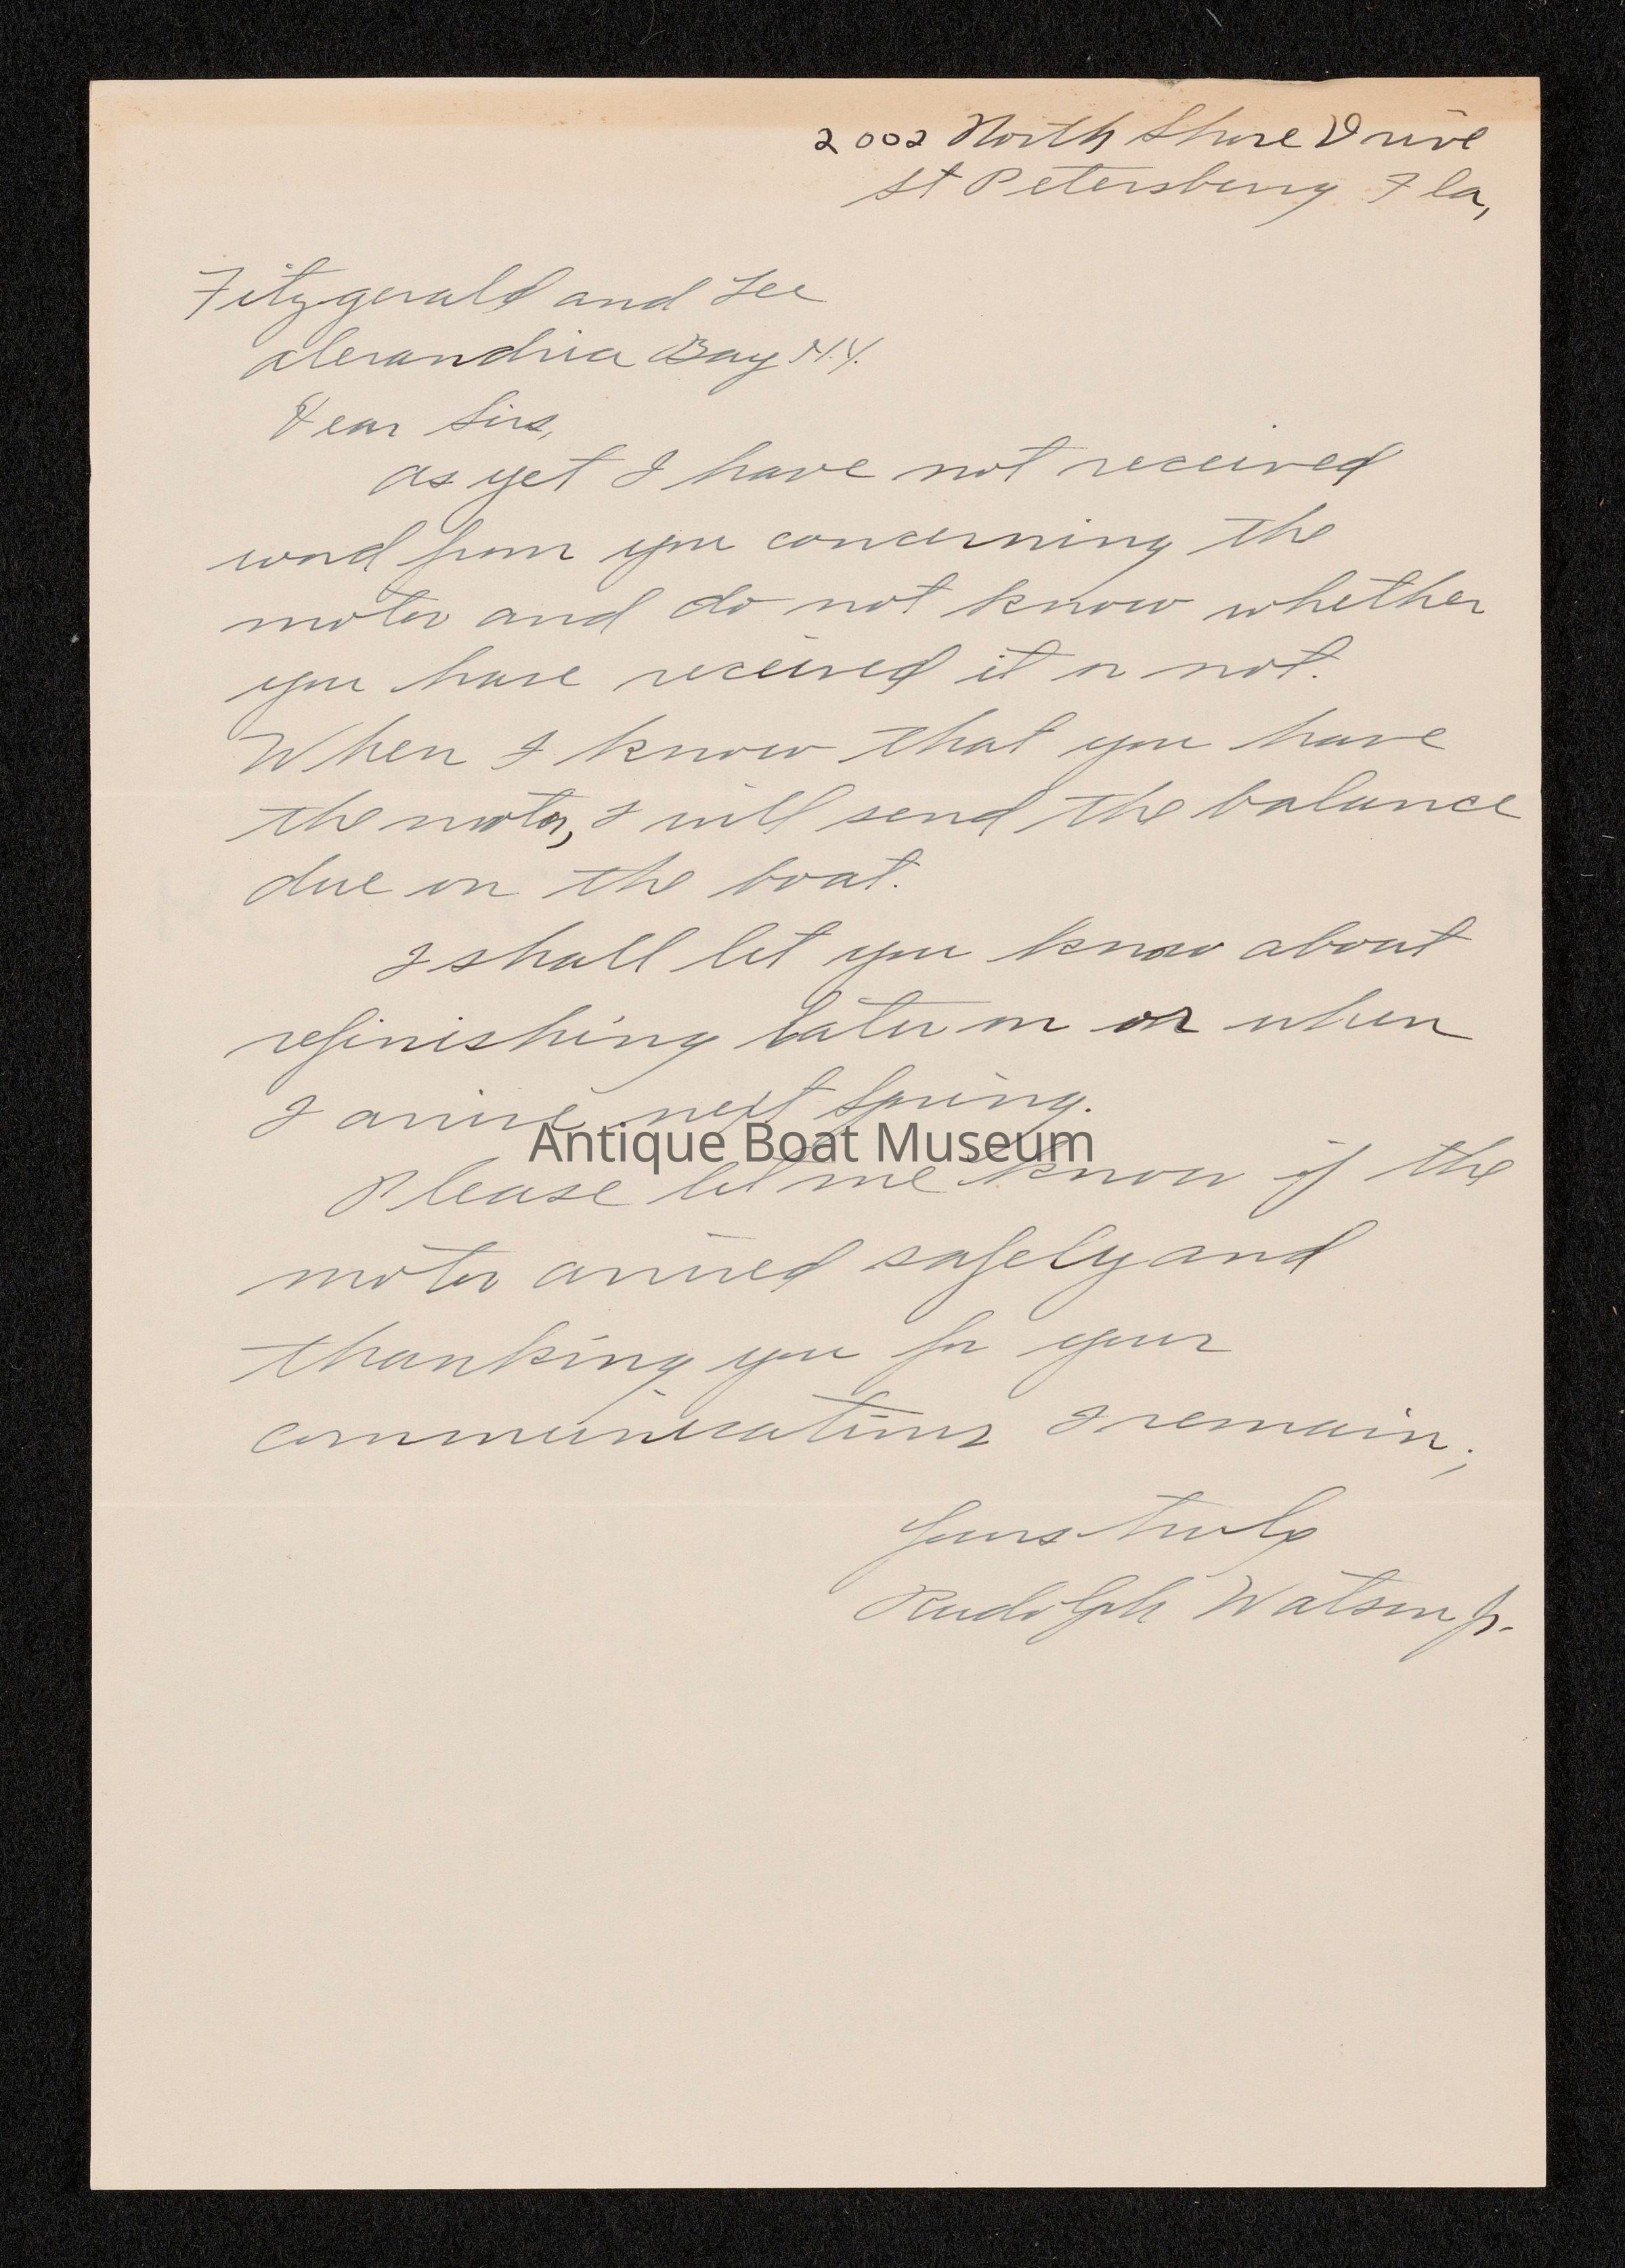 2002 North Shore Drive
St Petersburg Fla,
Fitzgerald and Lee
Alexandria Bay N.Y.
Dear Sirs,
As yet I have not received
word from you concerning the
motor and do not know whether
you have received it or not.
When I know that you have
the motor, I will send the balance
due on the boat.
I shall let you know about
refinishing later on or when
I arrive next Spring.
Antique Boat Museum
Please let me know if the
motor arrived safely and
thanking you for your
communications I remain;
Yours truly
Rudolph Watson Jr.